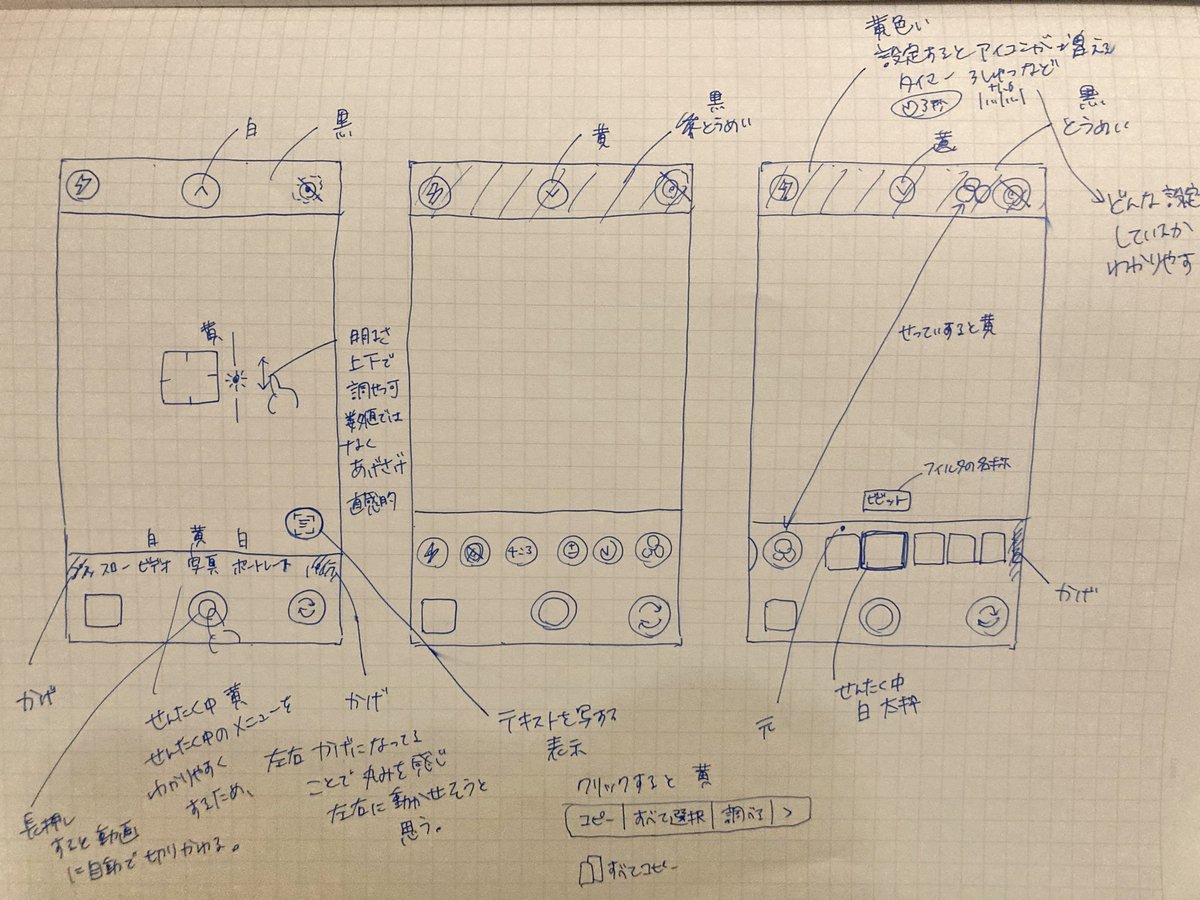 黄色い
設定するとアイコンが増える
タイマー ろしゅつなど
3秒
+1.0
黒
とうめい
どんな設定
しているか
わかりやす
白
黒
黄
黒
とうめい
黄
黄
明るさ
上下で
調せつ可
数値では
なく
あげさげ
直感的
せっていすると黄
フィルタの名称
ビビット
白 黄 白
スロー ビデオ 写真 ポートレート
4:3
かげ
かげ
かげ
せんたく中 黄
せんたく中のメニューを
わかりやすく
するため、
長押し
すると動画
に自動で切りかわる。
左右 かげになってる
ことで丸みを感じ
左右に動かせそうと
思う。
テキストを写する
表示
クリックすると 黄
コピー すべて選択 調べる >
すべてコピー
元
せんたく中
白 太枠